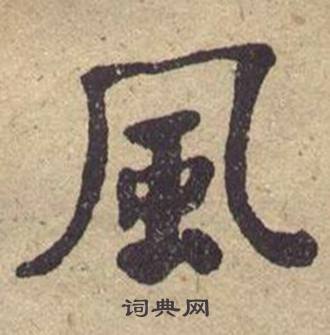 風
词典网